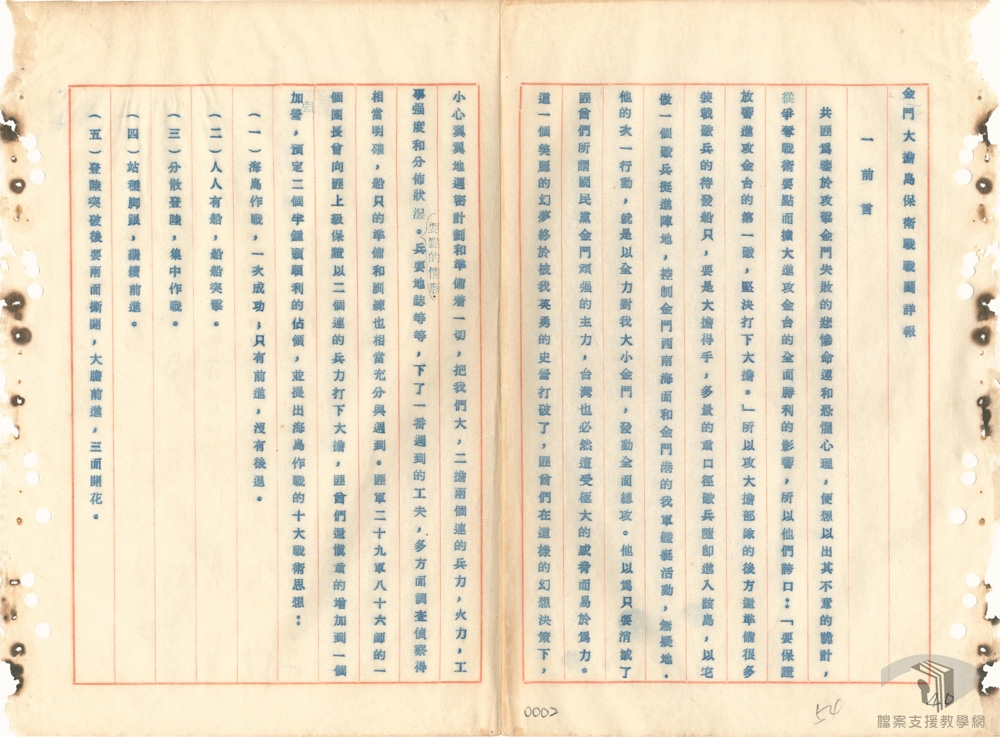 金門大擔島保衛戰戰鬥詳報
一 前言
共匪為鑒於攻擊金門失敗的悲慘命運和恐懼心理，便想以出其不意的詭計，
從爭奪戰術要點而擴大進攻金台的全面勝利的影響，所以他們誇口：「要保證
放響進攻金台的第一礮，堅決打下大擔。」所以攻大擔部隊的後方還準備很多
裝載礮兵的待發船只，要是大擔得手，多量的重口徑礮兵隨即進入該島，以它
做一個礮兵挺進陣地，控制金門西南海面和金門港的我軍艦艇活動，無疑地．
他的次一行動，就是以全力對我大小金門，發動全面總攻。他以為只要消滅了
匪酋們所謂國民黨金門頑强的主力，台灣也必然遭受極大的威脅而易於為力。
這一個美麗的幻夢終於被我英勇的史營打破了，匪酋們在這樣的幻想決策下，
小心翼翼地週密計劃和準備着一切，把我們大，二擔兩個連的兵力，火力，工
事强度和分佈狀況。兵要地誌等等，下了一番週到的工夫，多方面調查偵察得
要點的情形
相當明確，船只的準備和訓練也相當充分與週到。匪軍二十九軍八十六師的一
個團長曾向匪上級保證以二個連的兵力打下大擔，匪酋們還慎重的增加到一個
加營，預定二個字鐘頭順利的佔領，並提出海島作戰的十大戰術思想：
（一）海島作戰，一次成功；只有前進，沒有後退。
（二）人人有船，船船突擊。
（三）分散登陸，集中作戰。
（四）站穩脚跟，繼續前進。
（五）登陸突破後要兩面撕開，大膽前進，三面開花。
0002
54
40
檔案支援教學網